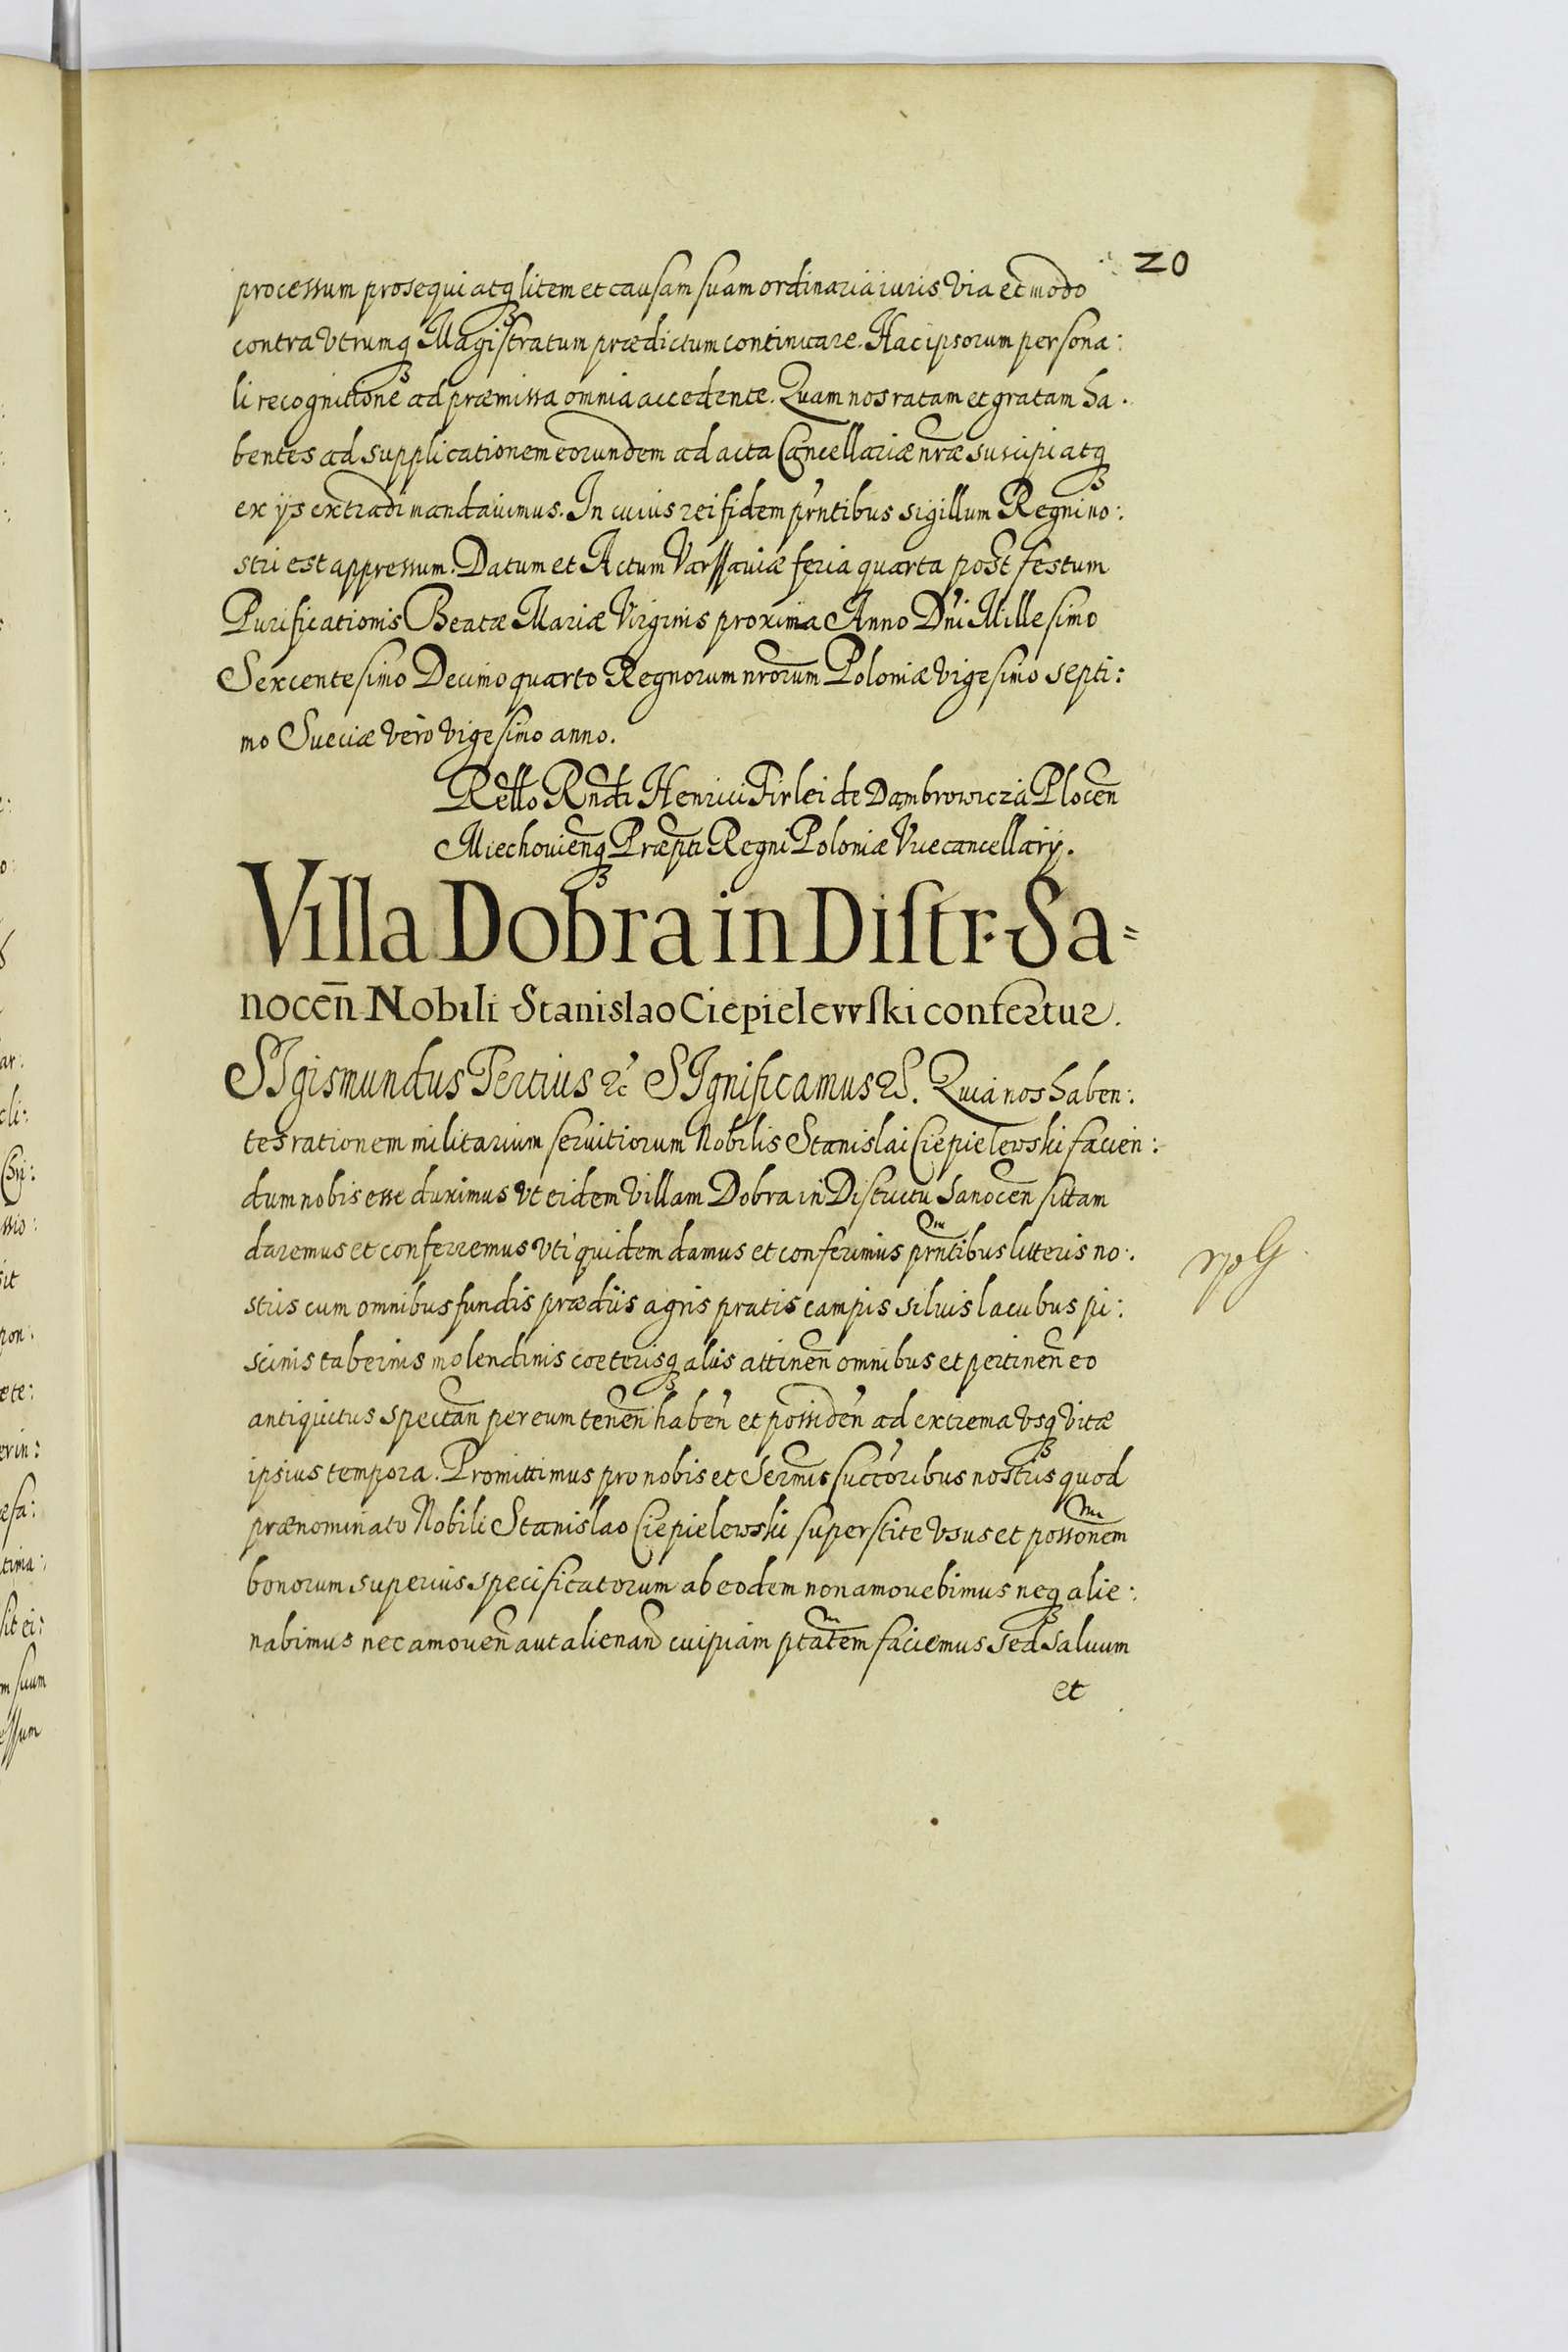 20
processum prosequi atq̃ litem et causam suam ordinaria iuris via et modo
contra vtrumq̃ Magistratum prædictum continuare. Hac ipsorum persona:
li recognitione ad præmissa omnia accedente. Quam nos ratam et gratam ha.
bentes ad supplicationem eorundem ad acta Cancellariæ nræ suscipi atq̃
ex ijs extradi mandauimus. In cuius rei fidem prńtibus sigillum Regni no:
stri est appressum. Datum et Actum Varssauiæ feria quarta post festum
Purificationis Beatæ Mariæ Virginis proxima Anno Dńi Millesimo
Sexcentesimo Decimo quarto Regnorum nrorum Poloniæ vigesimo septi:
mo Sueciæ verò vigesimo anno.
Rello Rndi Henrici Firlei de Dąmbrowicza Plocen̄
Miechouien̄q̃ Præpti Regni Poloniæ Vicecancellarij.
Villa Dobra in Diſtr. Sa=
nocen̄ Nobili Stanislao Ciepielewſki confertur.
SIgismundus Tertius &c SIgnificamus &c. Quia nos haben:
tes rationem militarium seruitiorum Nobilis Stanislai Ciepielewski facien:
dum nobis esse duximus vt eidem villam Dobra in Districtu Sanocen̄ sittam
daremus et conferremus vti quidem damus et conferimus prñtibus litteris no:
stris cum omnibus fundis prædiis agris pratis campis siluis lacubus pi:
scinis tabernis molendinis coeterisq̃ aliis attinen̄ omnibus et pertinen̄ eo
antiquitus spectan̄ per eum tenen̄ haben̄ et possiden̄ ad extrema vsq̃ vitæ
ipsius tempora. Promittimus pro nobis et Sermis succoribus nostris quod
prænominato Nobili Stanislao Ciepielewski superstite vsus et possonem
bonorum superius specificatorum ab eodem non amouebimus neq̃ alie:
nabimus nec amouen̄ aut alienan̄ cuipiam ptatem faciemus sed saluum
et